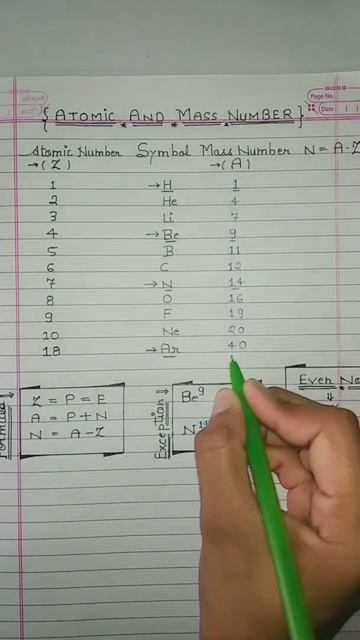 Page No.
Date
{ATOMIC AND MASS NUMBER}
Atomic Number Symbol Mass Number N = A-Z
→(Z) →(A)
1 → H 1
2 He 4
3 Li 7
4 → Be 9
5 B 11
6 C 12
7 → N 14
8 O 16
9 F 19
10 Ne 20
18 → Ar 40
Z = P = E
A = P + N
N = A - Z
Exception
Be⁹
N¹⁴
Even No